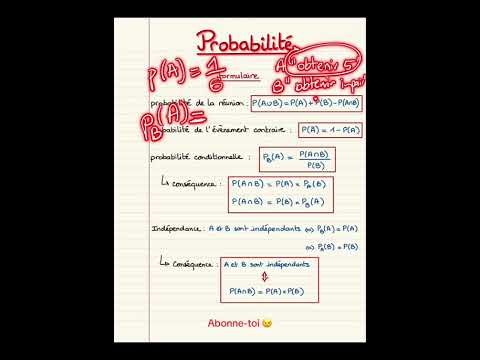 Probabilité
formulaire
P(A) = 1/6
A "obtenir 5"
B "obtenir impair
P_B(A) =
probabilité de la réunion : P(A∪B) = P(A) + P(B) - P(A∩B)
probabilité de l'évènement contraire : P(Ā) = 1 - P(A)
probabilité conditionnelle : P_B(A) = P(A∩B) / P(B)
↳ Conséquence : P(A∩B) = P(A) × P_A(B)
P(A∩B) = P(B) × P_B(A)
Indépendance : A et B sont indépendants ⇔ P_B(A) = P(A)
⇔ P_A(B) = P(B)
↳ Conséquence : A et B sont indépendants
⇕
P(A∩B) = P(A) × P(B)
Abonne-toi 😉